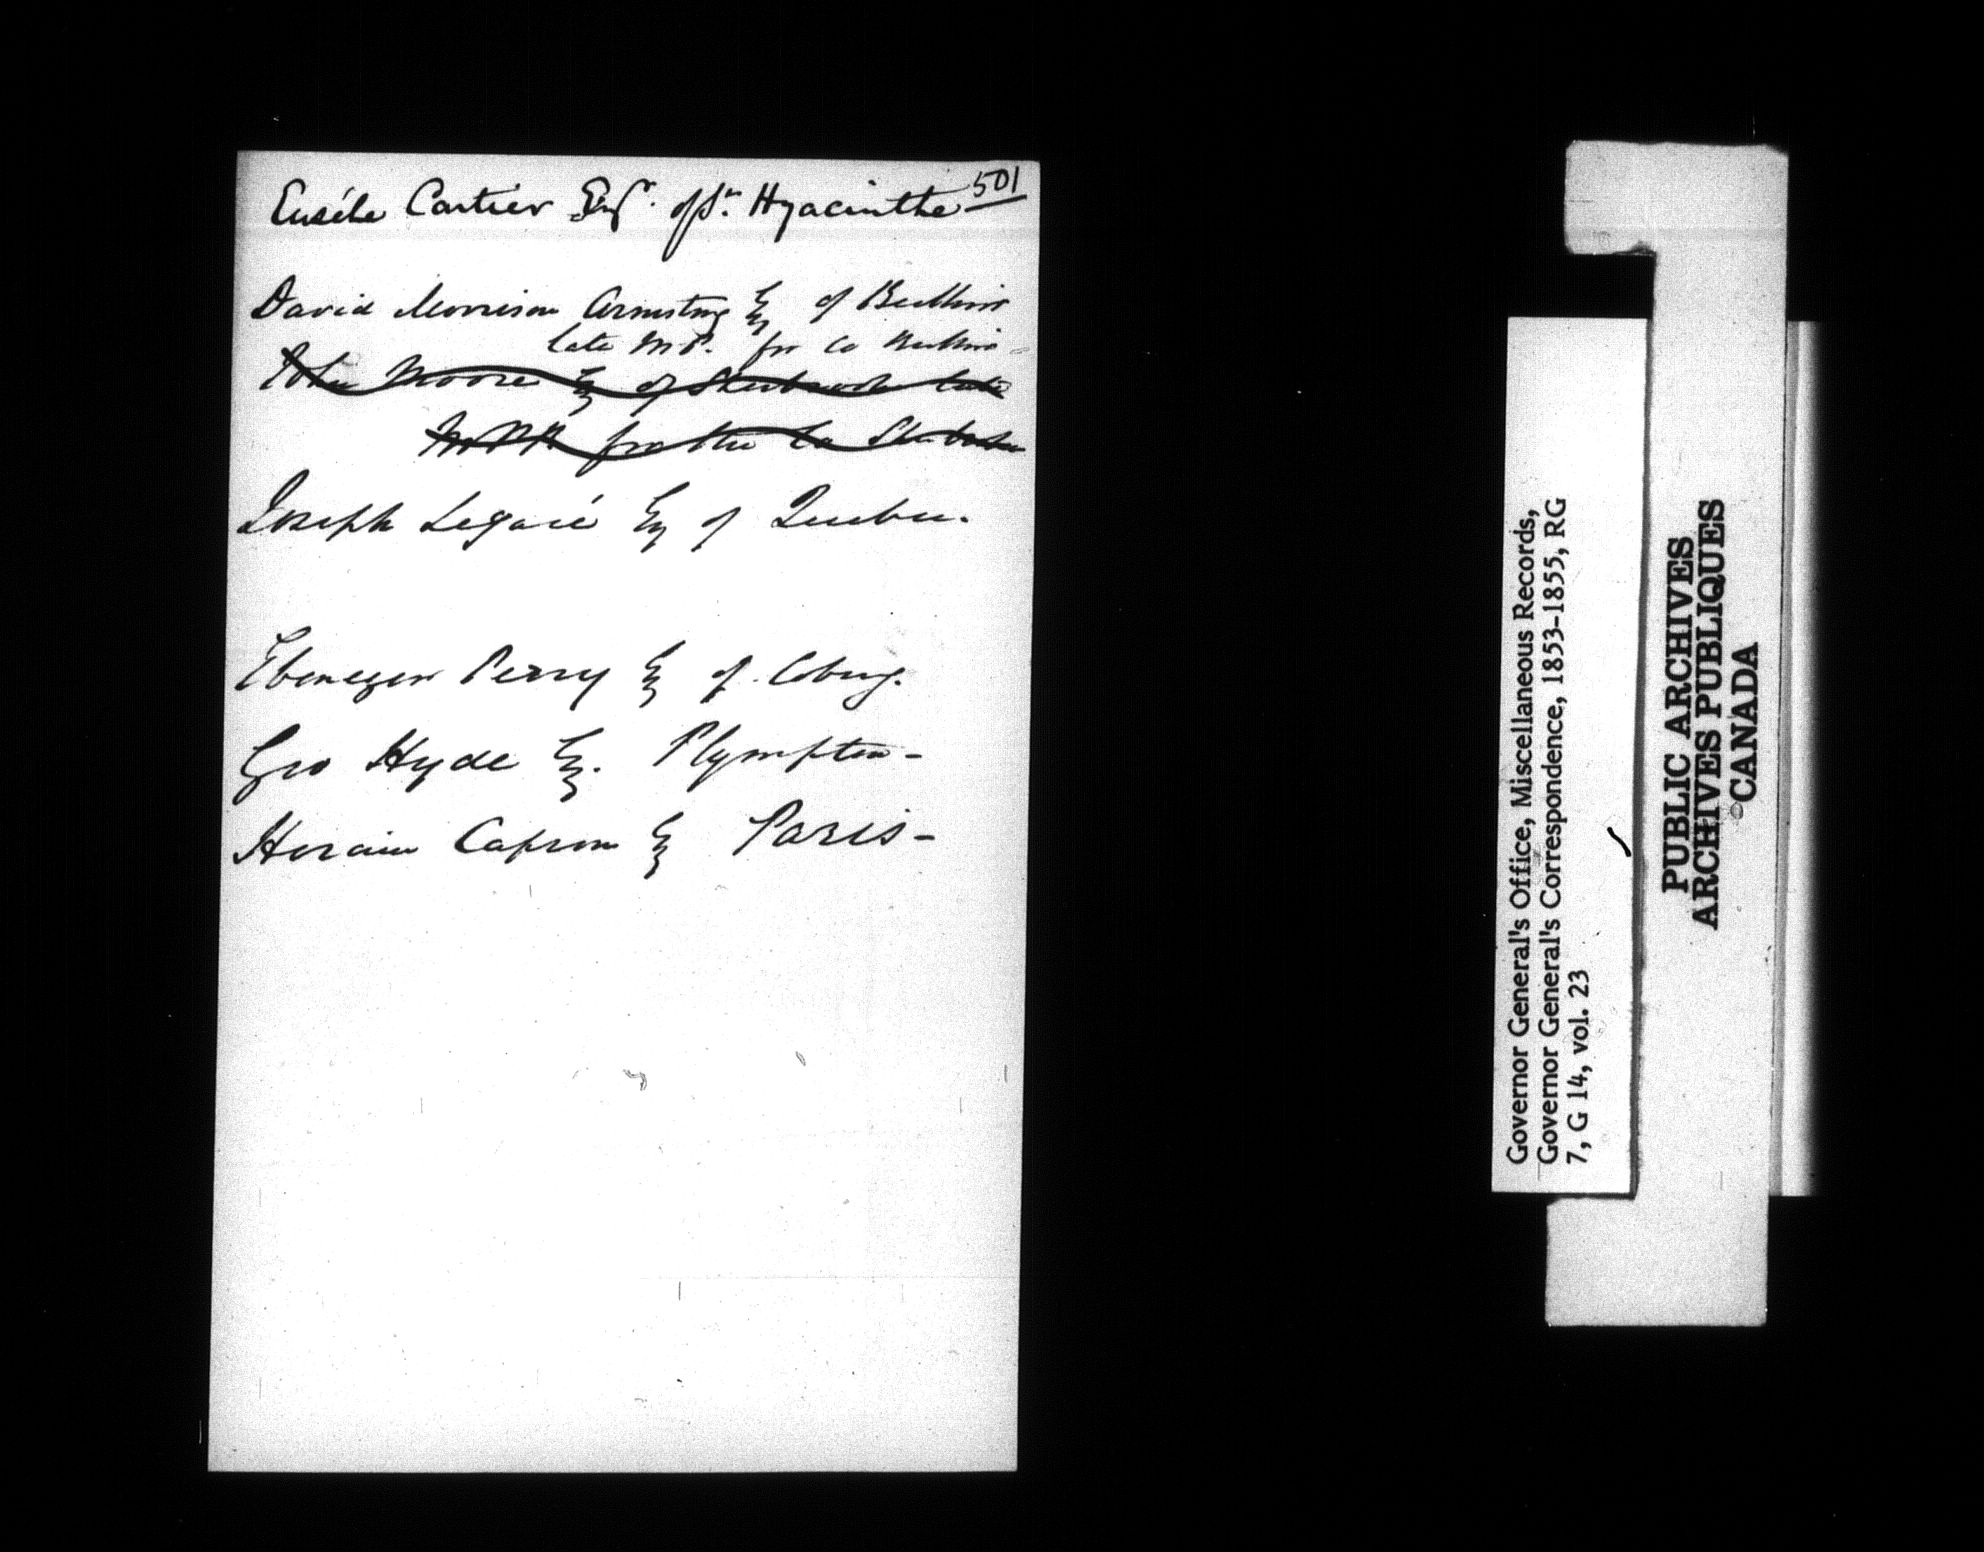 501
Eusèbe Cartier Esqr. of St. Hyacinthe
David Morrison Armstrong Esq of Berthier
late M.P. for Co Berthier
John Moore Esq of Sherbrooke late
M.P.P. for the Co Sherbrooke
Joseph Legaré Esq of Quebec.
Ebenezer Perry Esq of Cobourg.
Geo Hyde Esq. Plympton -
Hiram Capron Esq Paris -
Governor General's Office, Miscellaneous Records,
Governor General's Correspondence, 1853-1855, RG
7, G 14, vol. 23
PUBLIC ARCHIVES
ARCHIVES PUBLIQUES
CANADA